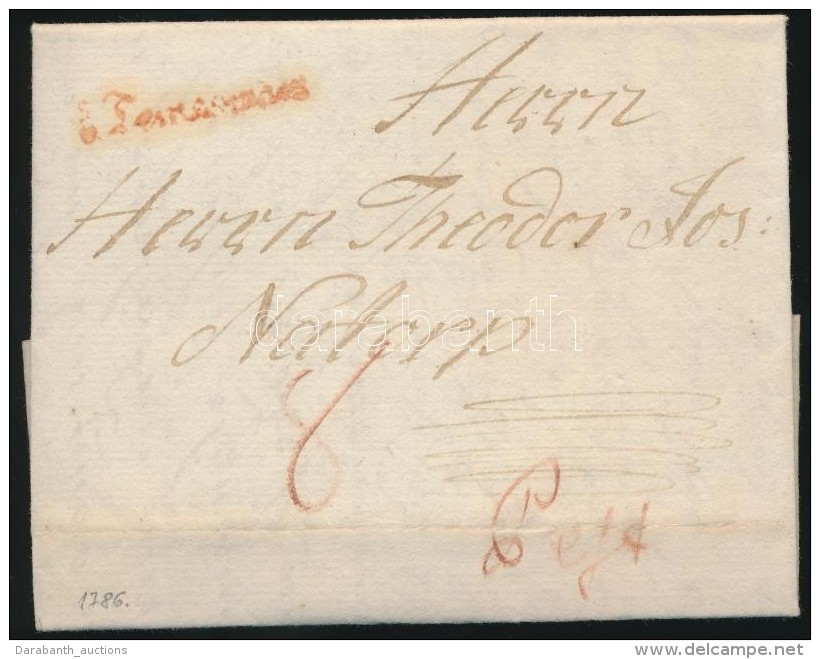 Herrn
Herrn Theodor Jos:
Natorp
darabanth
8
Pest
1786.
Darabanth_auctions
www.delcampe.net